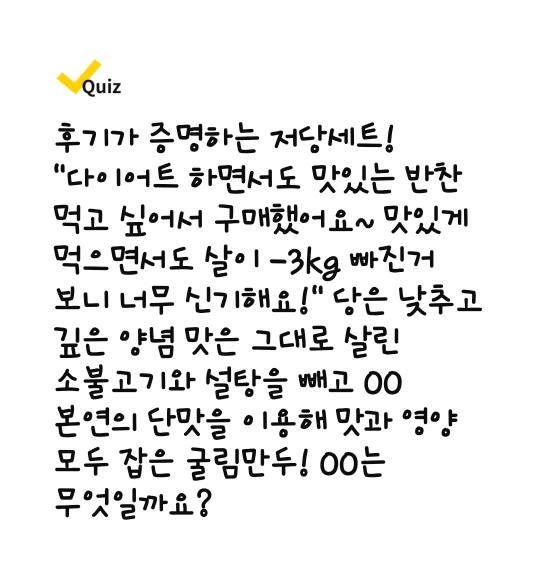 Quiz
후기가 증명하는 저당세트!
"다이어트 하면서도 맛있는 반찬
먹고 싶어서 구매했어요~ 맛있게
먹으면서도 살이 -3kg 빠진거
보니 너무 신기해요!" 당은 낮추고
깊은 양념 맛은 그대로 살린
소불고기와 설탕을 빼고 OO
본연의 단맛을 이용해 맛과 영양
모두 잡은 굴림만두! OO는
무엇일까요?